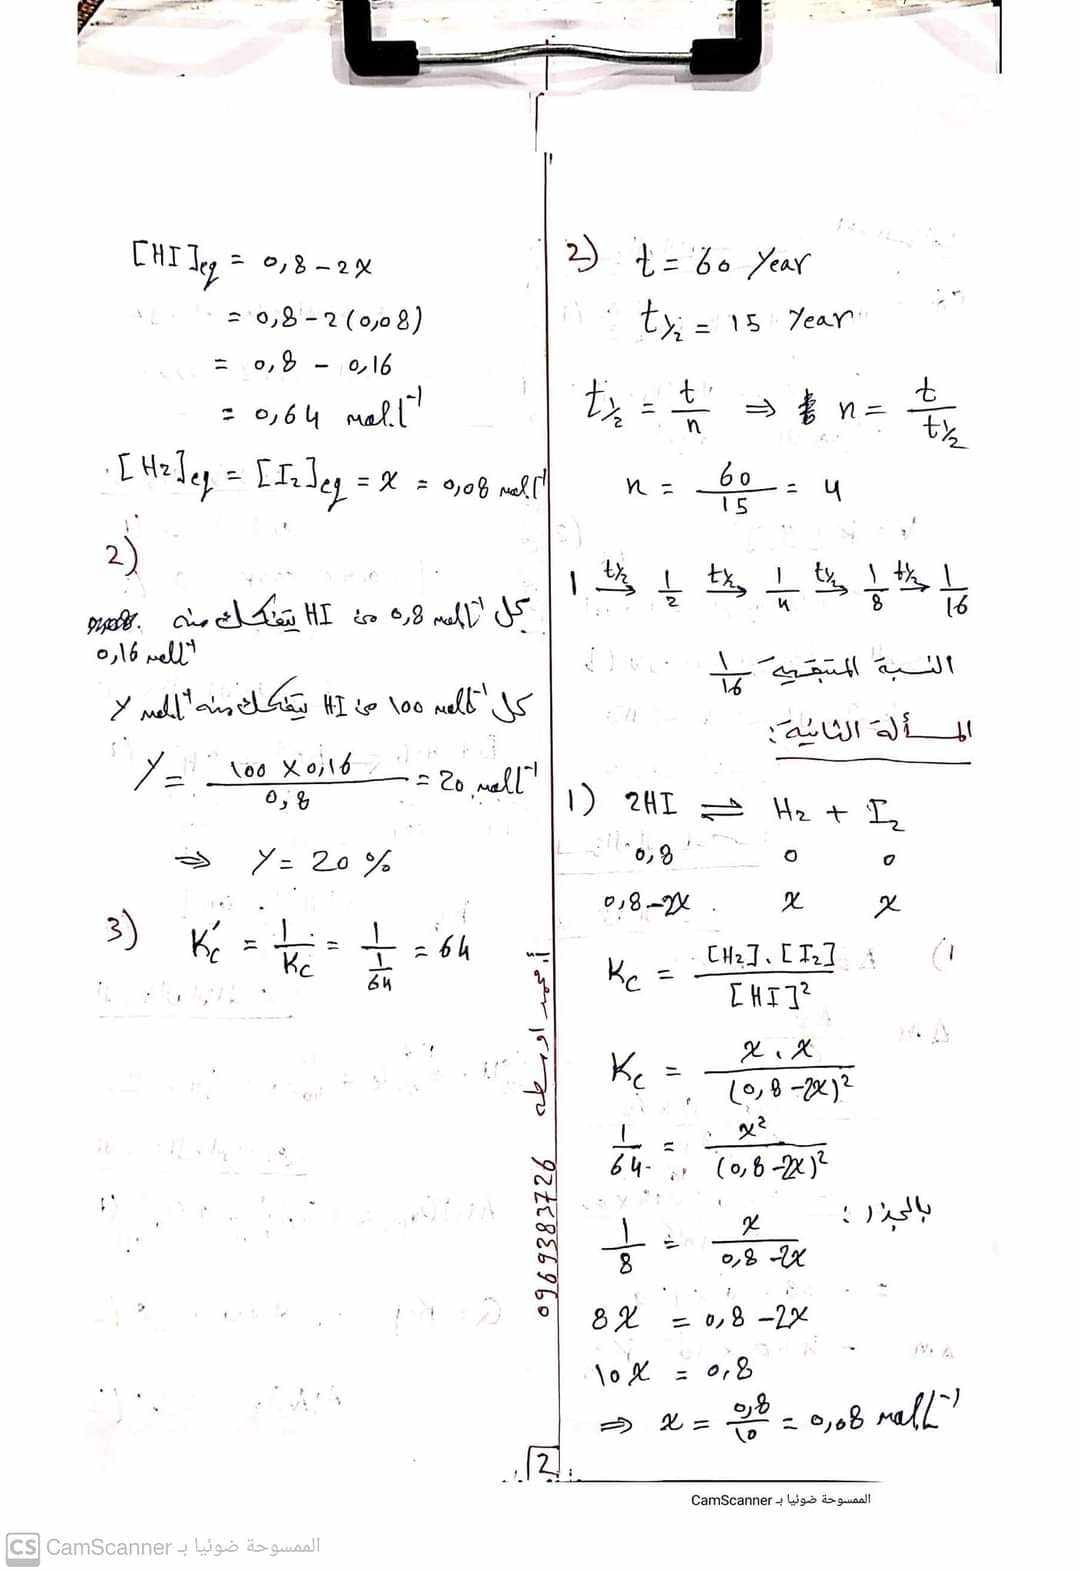 2) t = 60 Year
t½ = 15 Year
t½ = t/n ⇒ n = t/t½
n = 60/15 = 4
1 t½→ 1/2 t½→ 1/4 t½→ 1/8 t½→ 1/16
النسبة المتبقية 1/16
المسألة الثانية:
1) 2HI ⇌ H2 + I2
0,8 0 0
0,8-2x x x
Kc = [H2].[I2]/[HI]²
Kc = x.x/(0,8-2x)²
1/64 = x²/(0,8-2x)²
بالجذر:
1/8 = x/0,8-2x
8x = 0,8-2x
10x = 0,8
⇒ x = 0,8/10 = 0,08 mol.l⁻¹
[HI]eq = 0,8-2x
= 0,8-2(0,08)
= 0,8 - 0,16
= 0,64 mol.l⁻¹
[H2]eq = [I2]eq = x = 0,08 mol.l⁻¹
2)
كل 0,8 mol.l⁻¹ من HI يتفكك منه
0,16 mol.l⁻¹
كل 100 mol.l⁻¹ من HI يتفكك منه y mol.l⁻¹
y = 100 x 0,16/0,8 = 20 mol.l⁻¹
⇒ y = 20 %
3) Kc′ = 1/Kc = 1/(1/64) = 64
0969383726
2
الممسوحة ضوئيا بـ CamScanner
CS الممسوحة ضوئيا بـ CamScanner